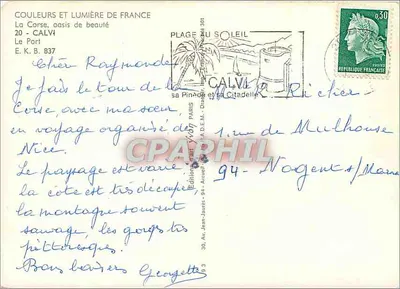 COULEURS ET LUMIÈRE DE FRANCE
La Corse, oasis de beauté
20 - CALVI
Le Port
E. K. B. 837
Chère Raymonde
Je fais le tour de la
Corse avec ma sœur
en voyage organisé de
Nice.
Le paysage est varié
la côte est très découpée
la montagne souvent
sauvage, les gorges très
pittoresques.
Bons baisers Georgette
PLAGE AU SOLEIL
CALVI
sa Pinède et sa Citadelle
0,30
RÉPUBLIQUE FRANÇAISE
Richer
1, rue de Mulhouse
94 - Nogent s/Marne
CPARPHIL
YVON
PARIS